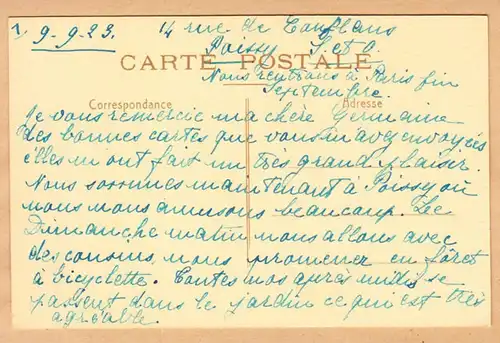 1, 9-9-23. 14 rue de Conflans
Poissy S. et O.
CARTE POSTALE
Nous rentrons à Paris fin
Septembre.
Correspondance Adresse
Je vous remercie ma chère Germaine
des bonnes cartes que vous m'avez envoyées
elles m'ont fait un très grand plaisir.
Nous sommes maintenant à Poissy où
nous nous amusons beaucoup. Le
Dimanche matin nous allons avec
des cousins, nous promener en forêt
à bicyclette. Toutes nos après midis se
passent dans le jardin ce qui est très
agréable.